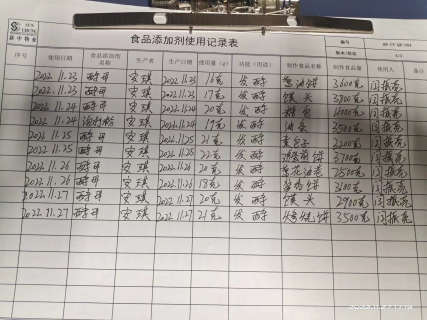 SUN CHUNG
新中物业
食品添加剂使用记录表
编号 SD-CY-QR-004
版本/状态 A/0
序号 使用日期 食品添加剂名称 生产名 生产日期 使用量(g) 功能(用途) 制作食品名称 制作食品量 使用人 备注
2022.11.23 酵母 安琪 2022.11.23 16克 发酵 葱油饼 3600克 闫振亮
2022.11.23 酵母 安琪 2022.11.23 17克 发酵 馒头 3700克 闫振亮
2022.11.24 酵母 安琪 2022.11.24 20克 发酵 4000克 闫振亮
2022.11.24 泡打粉 安琪 2022.11.24 19克 发酵 油条 3500克 闫振亮
2022.11.25 酵母 安琪 2022.11.25 21克 发酵 包子 2200克 闫振亮
2022.11.25 酵母 安琪 2022.11.25 22克 发酵 饼 3700克 闫振亮
2022.11.26 酵母 安琪 2022.11.26 20克 发酵 葱花油卷 2500克 闫振亮
2022.11.26 酵母 安琪 2022.11.26 18克 发酵 饼 3100克 闫振亮
2022.11.27 酵母 安琪 2022.11.27 20克 发酵 馒头 2900克 闫振亮
2022.11.27 酵母 安琪 2022.11.27 21克 发酵 烧饼 3500克 闫振亮